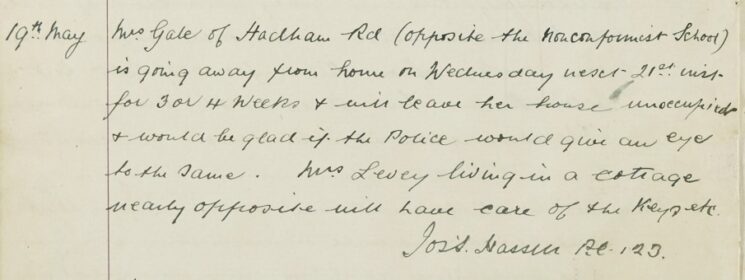 19th May Mrs Gale of Hadham Rd (opposite the Nonconformist School)
is going away from home on Wednesday next 21st inst
for 3 or 4 Weeks & will leave her house unoccupied
& would be glad if the Police would give an eye
to the same. Mrs Levey living in a cottage
nearly opposite will have care of the Keys etc.
Jos. Hassen P.C. 123.